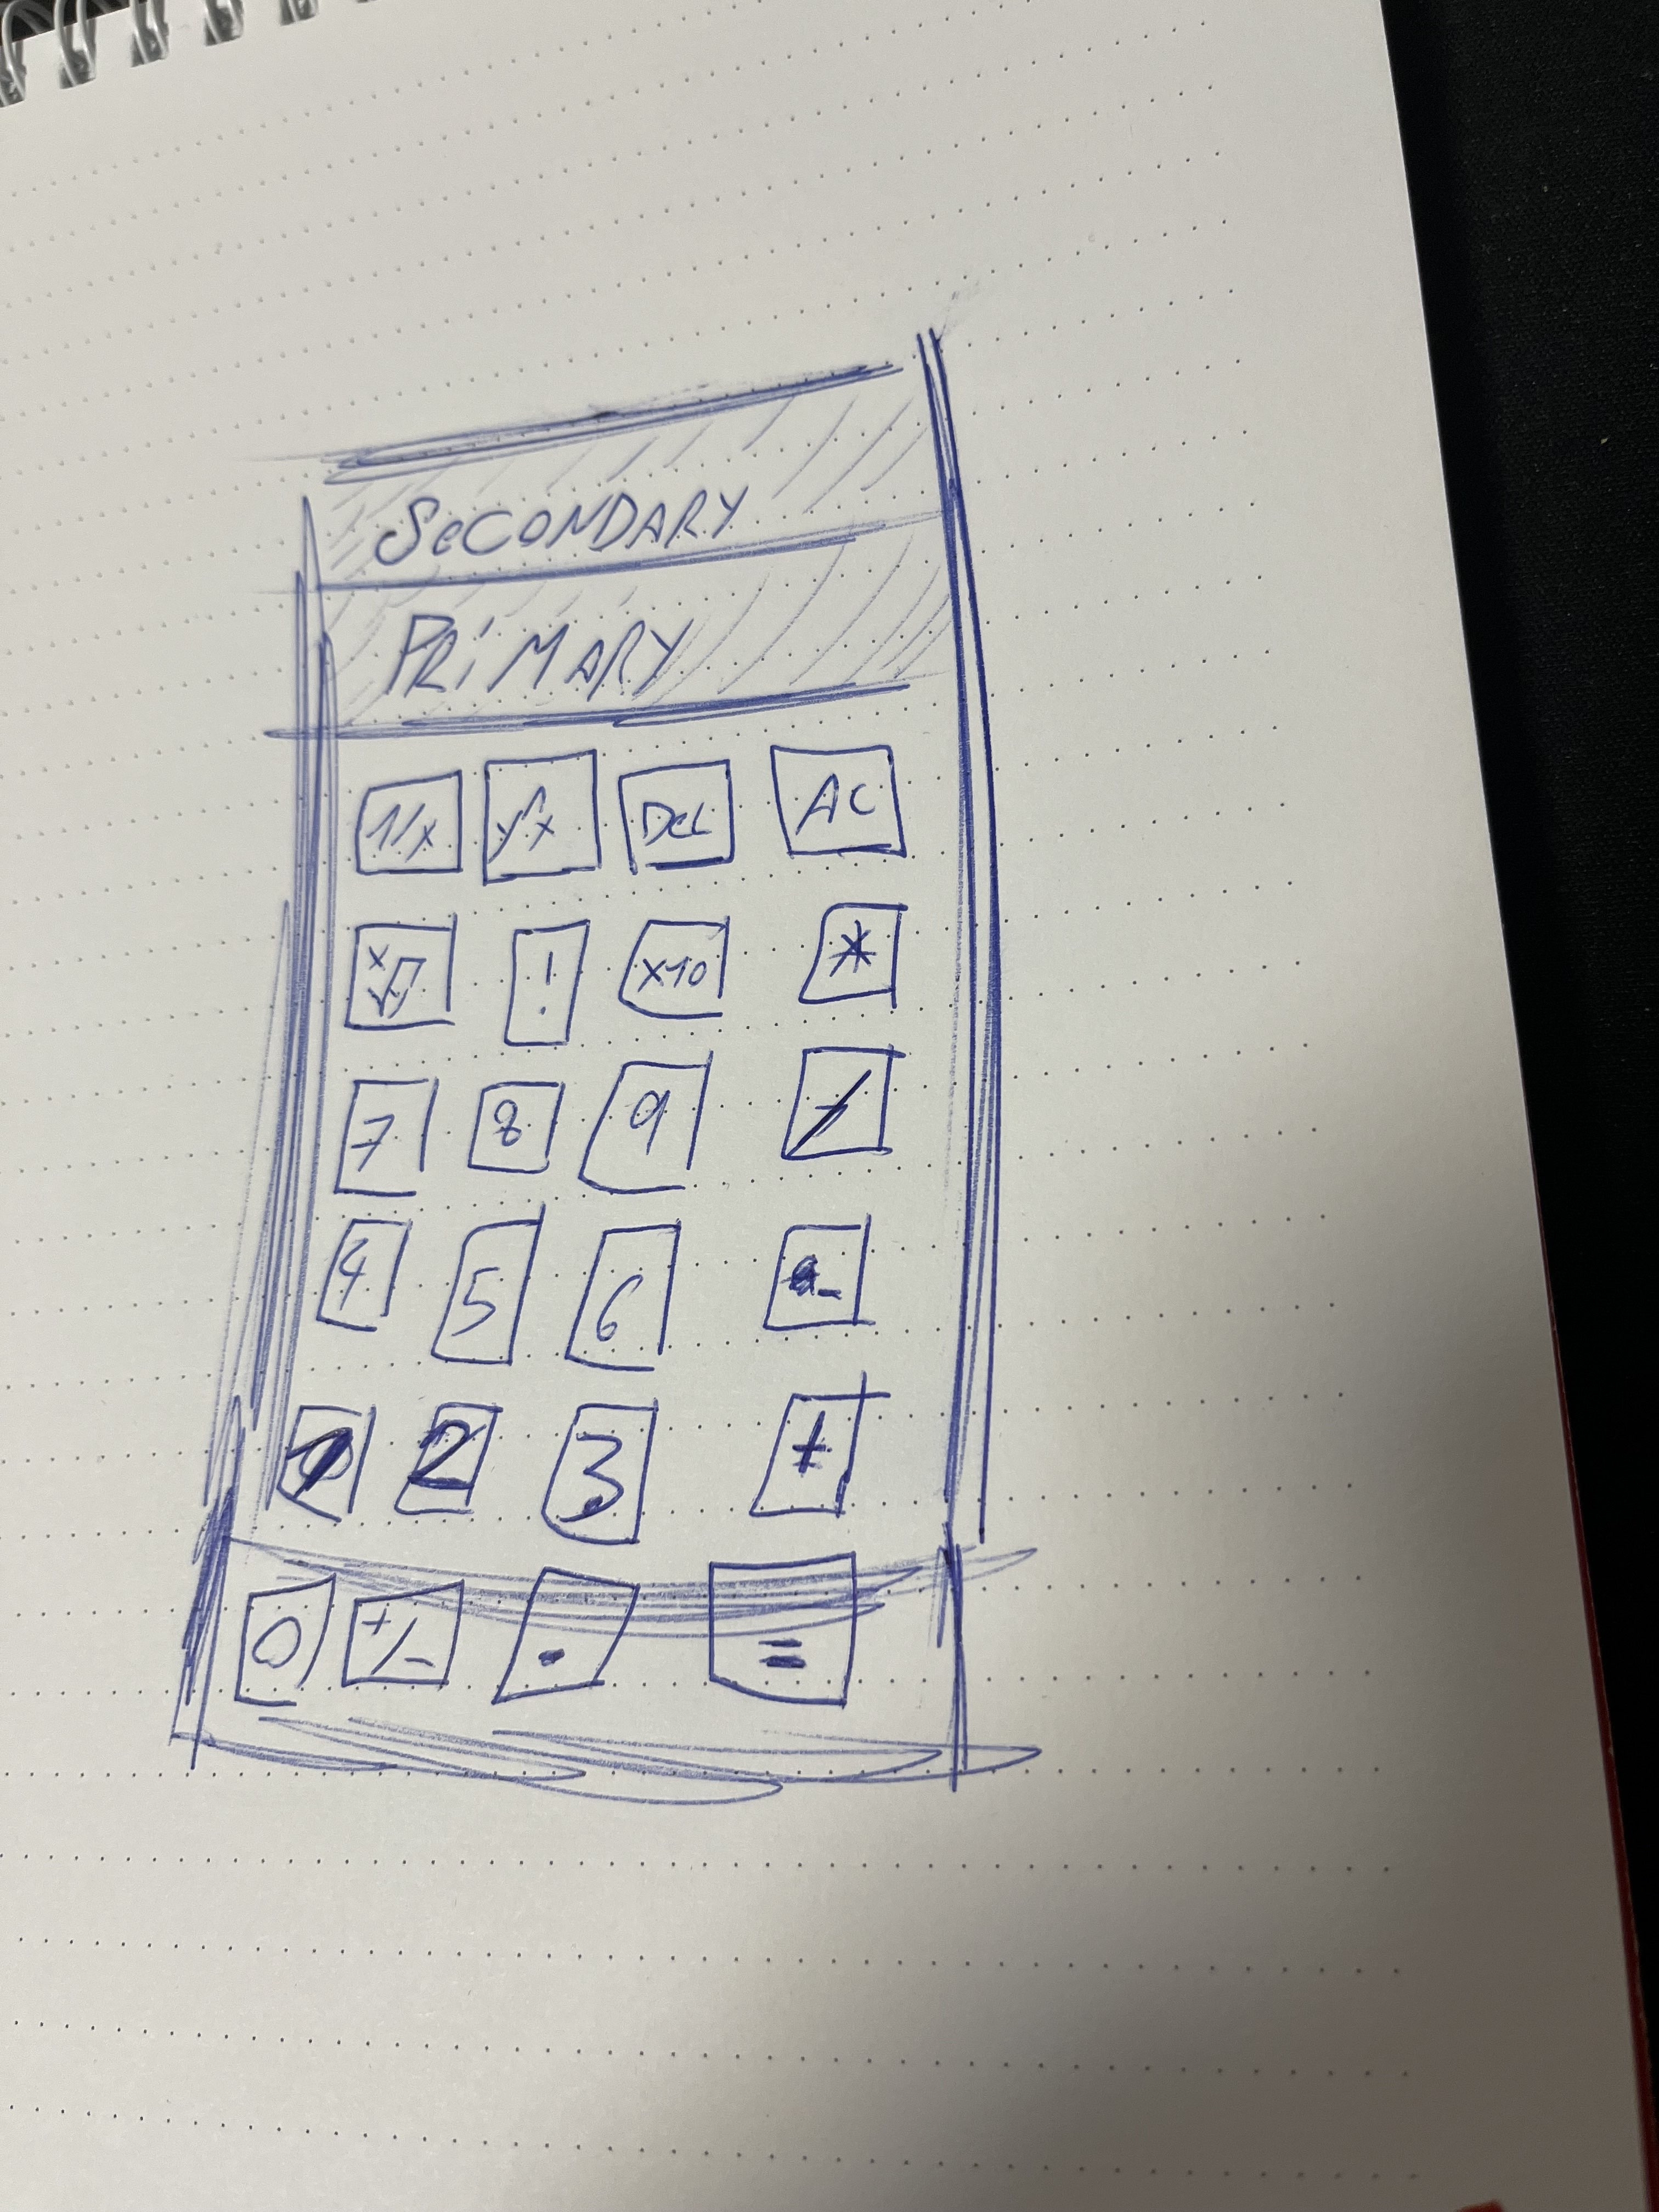 SeCONDARY
PRiMARY
1/x y^x Del AC
x√y ! x10 *
7 8 9 /
4 5 6 -
1 2 3 +
0 +/- . =